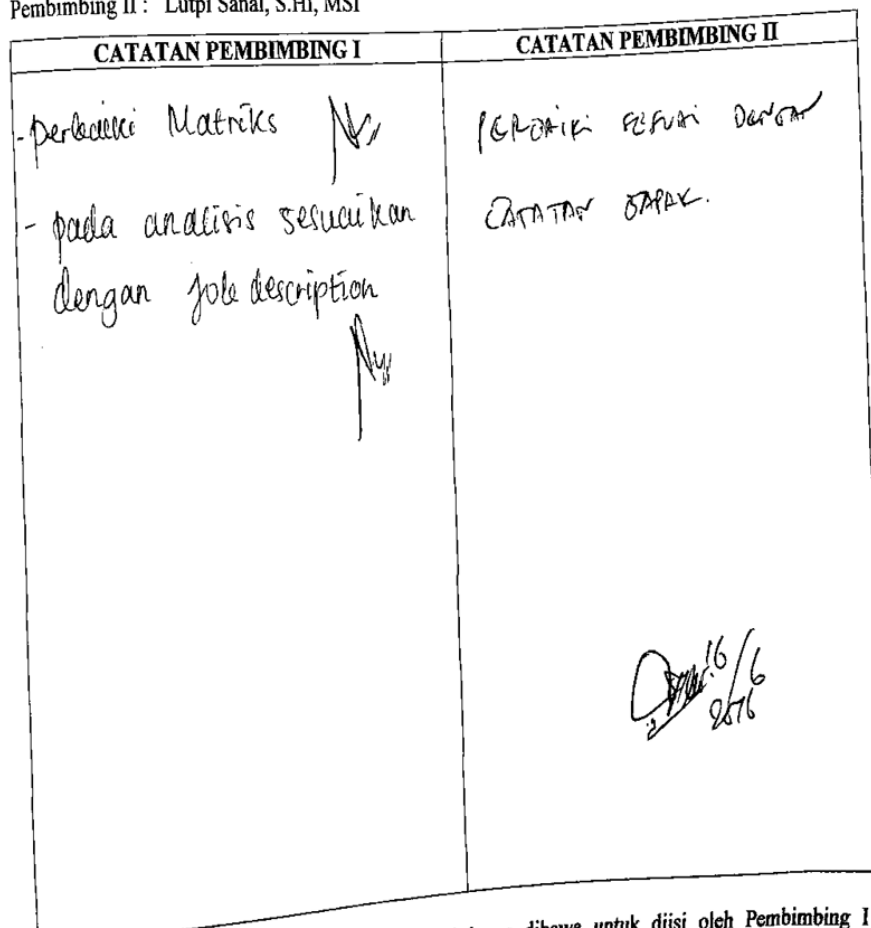 Pembimbing II : Lutpi Sahal, S.HI, MSI
CATATAN PEMBIMBING I
- perbaiki Matriks
- pada analisis sesuaikan
dengan job description
CATATAN PEMBIMBING II
PERBAIKI SESUAI DENGAN
CATATAN BAPAK.
16/6
2016
dibawa untuk diisi oleh Pembimbing I